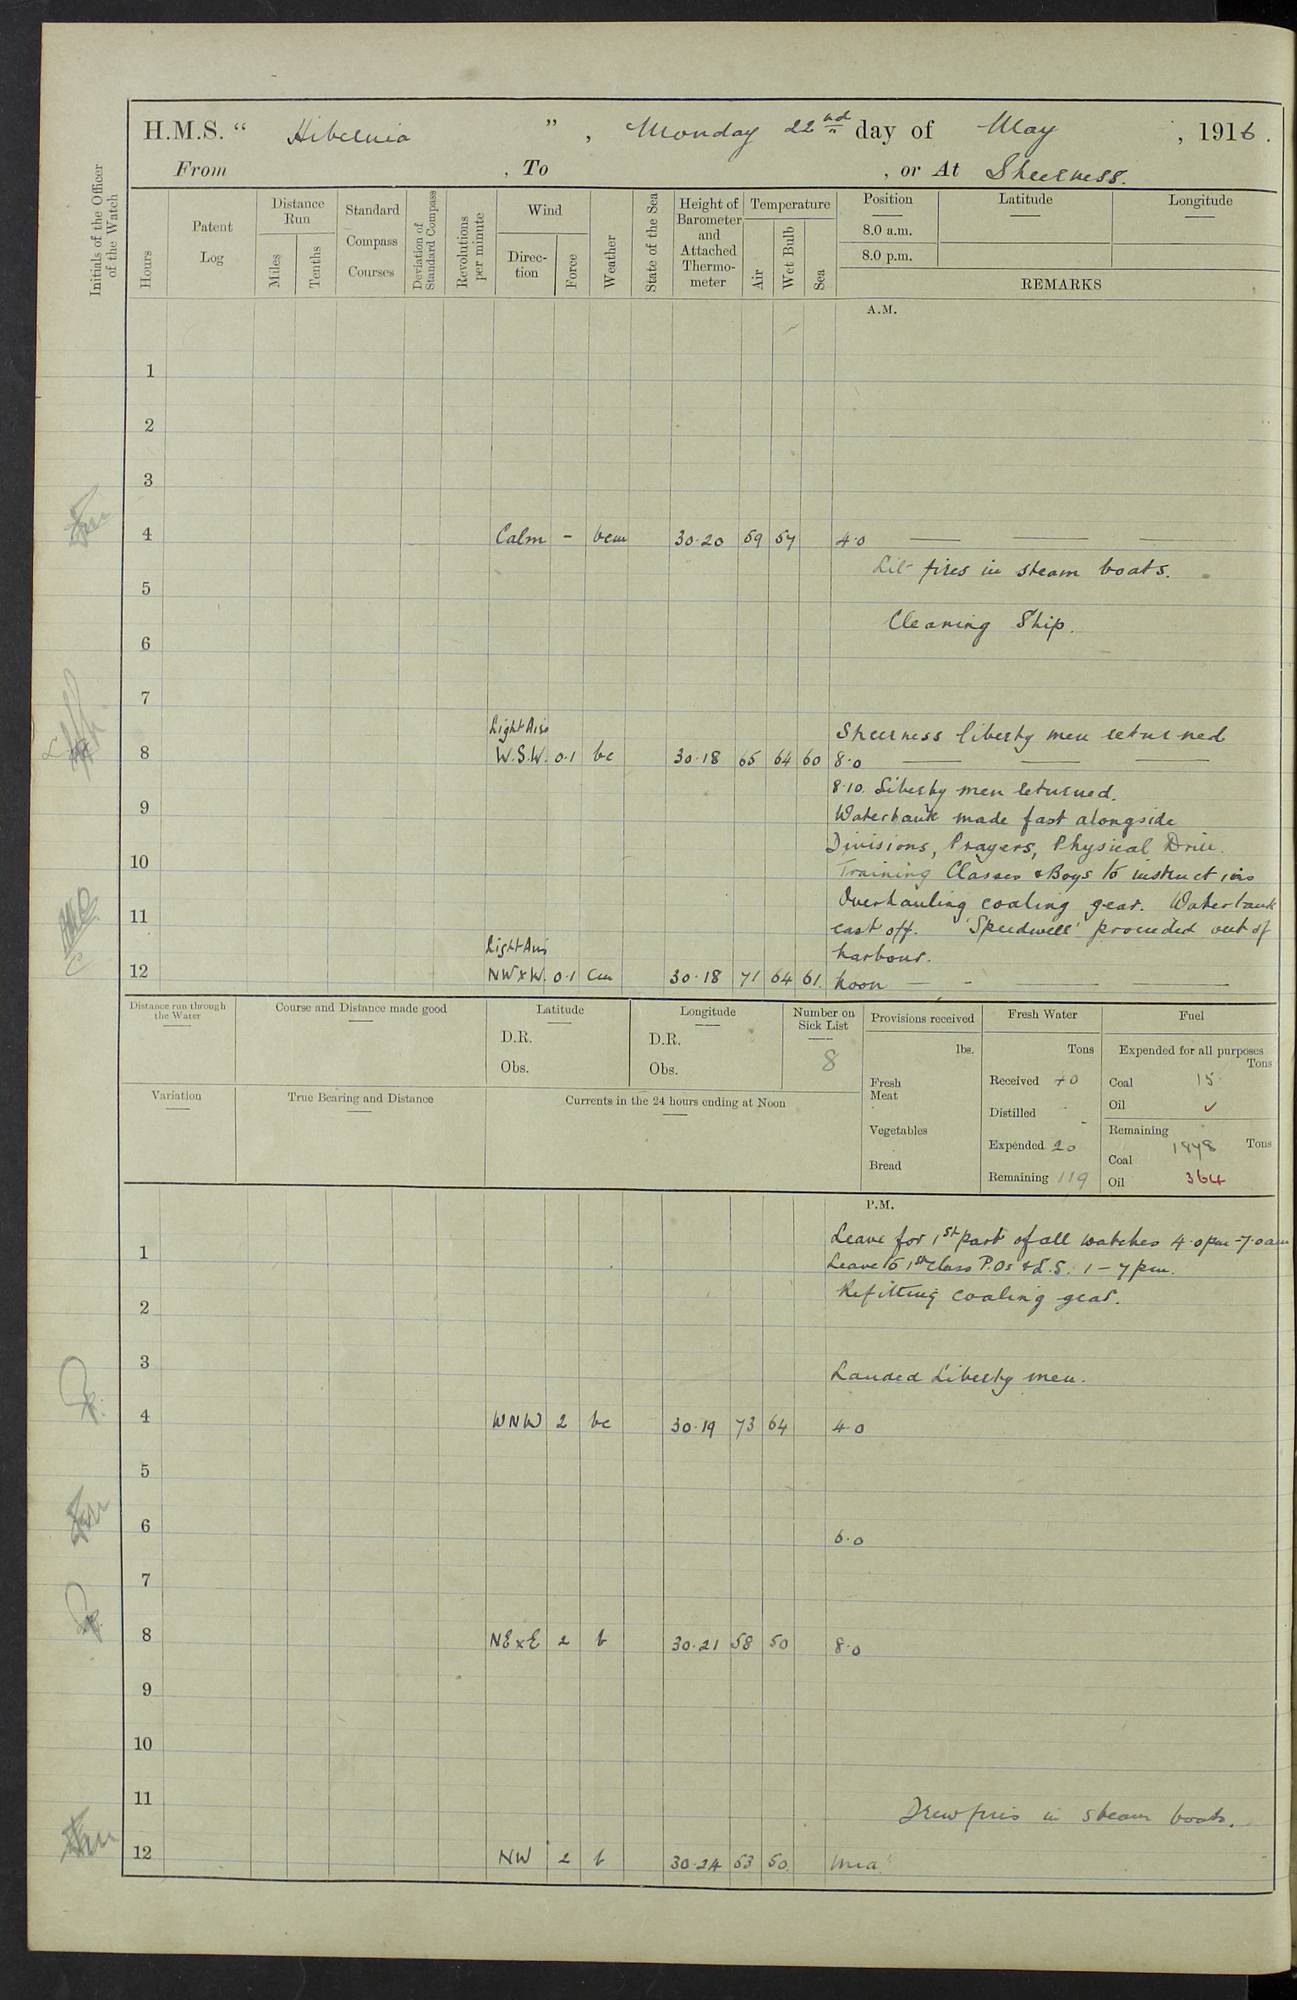 H.M.S. “ Hibernia ” , Monday 22nd day of May , 1916.
From , To , or At Sheerness.
Initials of the Officer of the Watch
Hours
Patent Log
Distance Run
Miles
Tenths
Standard Compass Courses
Deviation of Standard Compass
Revolutions per minute
Wind
Direc-tion
Force
Weather
State of the Sea
Height of Barometer and Attached Thermo-meter
Temperature
Air
Wet Bulb
Sea
Position
Latitude
Longitude
8.0 a.m.
8.0 p.m.
REMARKS
A.M.
1
2
3
4 Calm - bcm 30·20 59 57 4·0
Lit fires in steam boats.
5
Cleaning Ship.
6
7
Light Airs Sheerness liberty men returned
8 W.S.W. 0·1 bc 30·18 65 64 60 8·0
8·10. Liberty men returned.
9 Watertank made fast alongside
Divisions, Prayers, Physical Drill.
10 Training Classes & Boys to instructions
Overhauling coaling gear. Watertank
11 cast off. 'Speedwell' proceeded out of
Light Airs harbour.
12 NW x W. 0·1 cm 30·18 71 64 61. Noon
Distance run through the Water
Course and Distance made good
Latitude
D.R.
Obs.
Longitude
D.R.
Obs.
Number on Sick List
8
Provisions received
lbs.
Fresh Meat
Vegetables
Bread
Fresh Water
Tons
Received 40
Distilled -
Expended 20
Remaining 119
Fuel
Expended for all purposes
Tons
Coal 15
Oil ✓
Remaining
Tons
Coal 1878
Oil 364
Variation
True Bearing and Distance
Currents in the 24 hours ending at Noon
P.M.
Leave for 1st part of all watches 4·0pm-7·0am
1 Leave to 1st Class P.Os & L.S. 1 - 7 pm.
Refitting coaling gear.
2
3 Landed Liberty men.
4 WNW 2 bc 30·19 73 64 4·0
5
6 6·0
7
8 NE x E 2 b 30·21 58 50 8·0
9
10
11 Drew fires in steam boats.
12 NW 2 b 30·24 53 50. Mid.